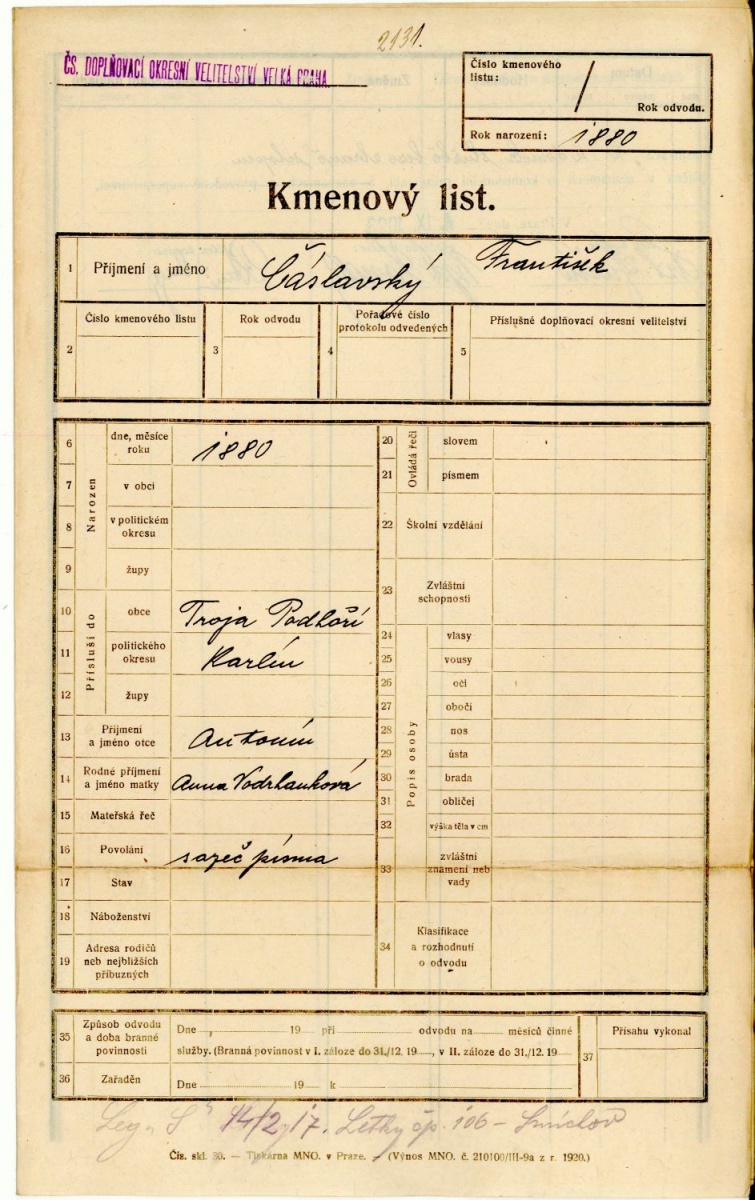 2131.
ČS. DOPLŇOVACÍ OKRESNÍ VELITELSTVÍ VELKÁ PRAHA
Číslo kmenového
listu:
/
Rok odvodu.
Rok narození: 1880
Kmenový list.
1 Příjmení a jméno Čáslavský František
2 Číslo kmenového listu
3 Rok odvodu
4 Pořadové číslo
protokolu odvedených
5 Příslušné doplňovací okresní velitelství
Narozen
6 dne, měsíce
roku 1880
7 v obci
8 v politickém
okresu
9 župy
Přísluší do
10 obce Troja Podhoří
11 politického
okresu Karlín
12 župy
13 Příjmení
a jméno otce Antonín
14 Rodné příjmení
a jméno matky Anna Vodrhánková
15 Mateřská řeč
16 Povolání sazeč písma
17 Stav
18 Náboženství
19 Adresa rodičů
neb nejbližších
příbuzných
Ovládá řeči
20 slovem
21 písmem
22 Školní vzdělání
23 Zvláštní
schopnosti
Popis osoby
24 vlasy
25 vousy
26 oči
27 obočí
28 nos
29 ústa
30 brada
31 obličej
32 výška těla v cm
33 zvláštní
znamení neb
vady
34 Klasifikace
a rozhodnutí
o odvodu
35 Způsob odvodu
a doba branné
povinnosti
Dne 19 při odvodu na měsíců činné
služby. (Branná povinnost v I. záloze do 31./12. 19 , v II. záloze do 31./12. 19
36 Zařaděn
Dne 19 k
37 Přísahu vykonal
Leg. 94/2 17. Letky čp. 106 – Smíchov
Čís. skl. 30. — Tiskárna MNO. v Praze. — (Výnos MNO. č. 210100/III-9a z r. 1920.)